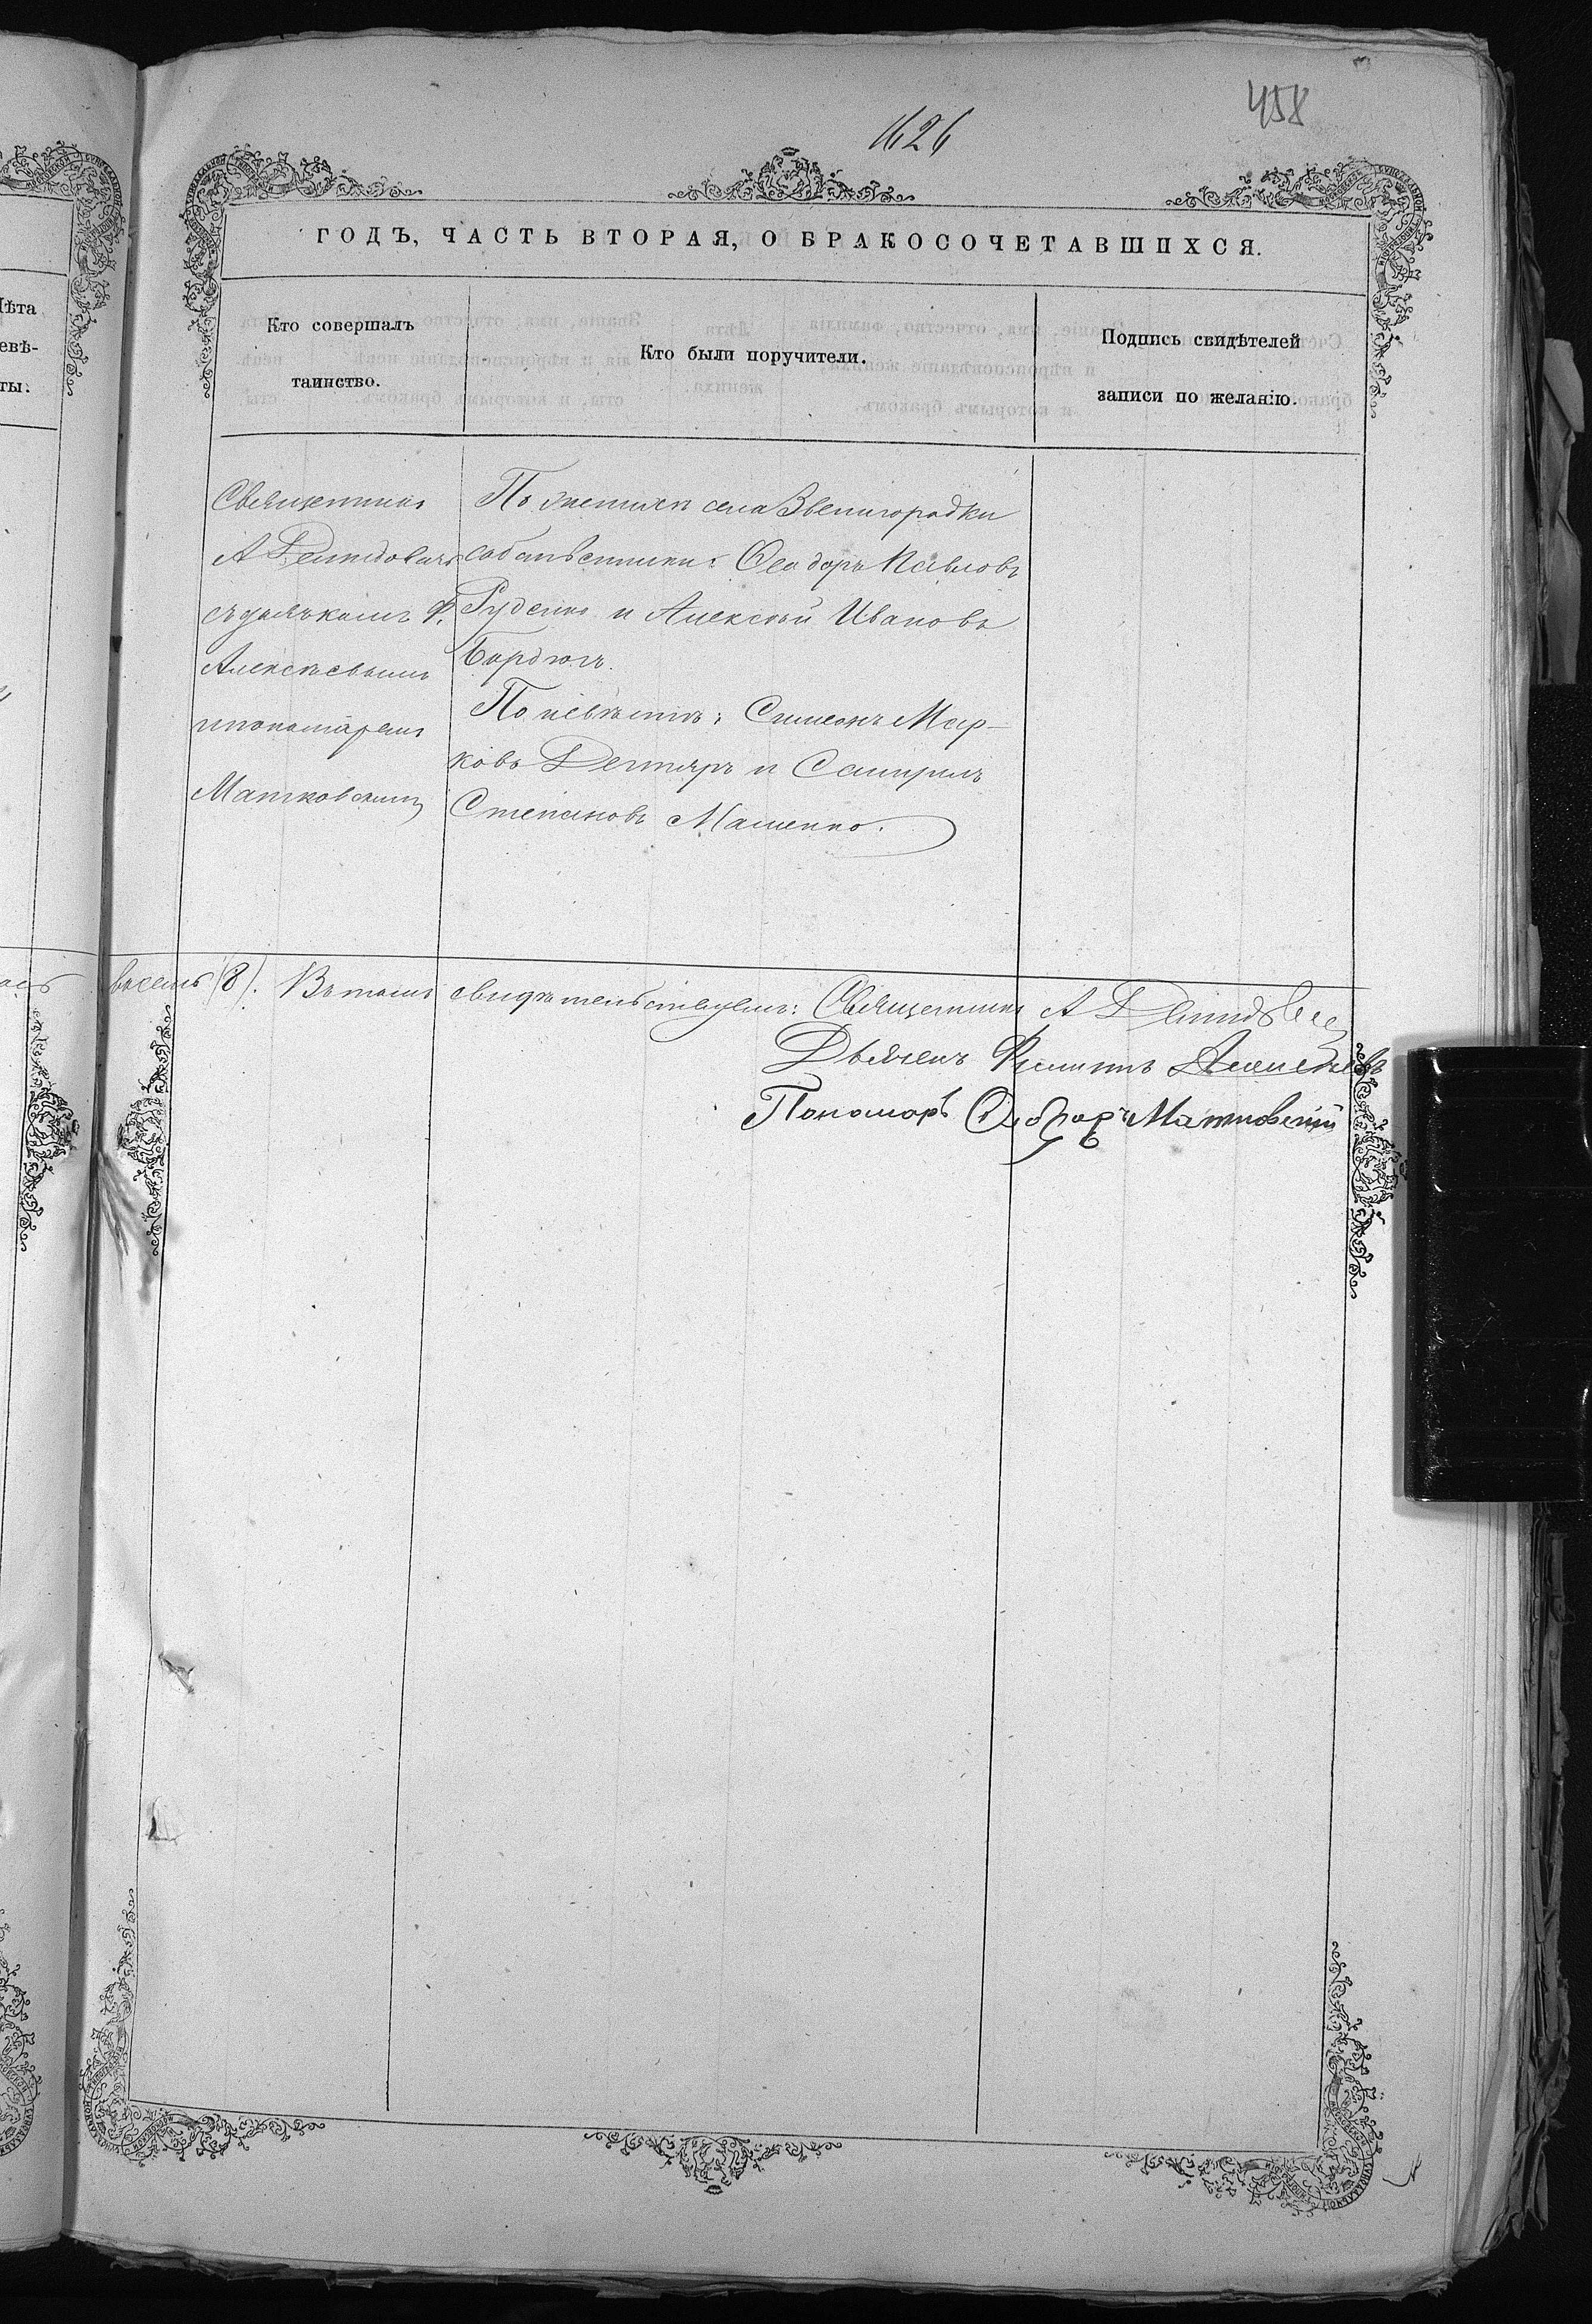 458
1626
ГОДЪ, ЧАСТЬ ВТОРАЯ, О БРАКОСОЧЕТАВШИХСЯ.
Лѣта
невѣ-
сты.
Кто совершалъ
таинство.
Кто были поручители.
Подпись свидѣтелей
записи по желанію.
Священникъ
А Демидовичъ
съ дьячкомъ Ф.
Алексѣевымъ
и пономаремъ
Матковскимъ
По женихѣ села Звенигородки
собственники: Ѳеодоръ Павловъ
Руденко и Алексѣй Ивановъ
Бардюгъ.
По невѣстѣ: Симеонъ Мар-
ковъ Дегтяръ и
Степановъ Мащенко.
восемь (8). Въ томъ свидѣтельствуемъ: Священникъ А Демидовичъ
Дьячекъ Филиппъ Алексѣевъ
Пономарь Ѳеодоръ Матковскій